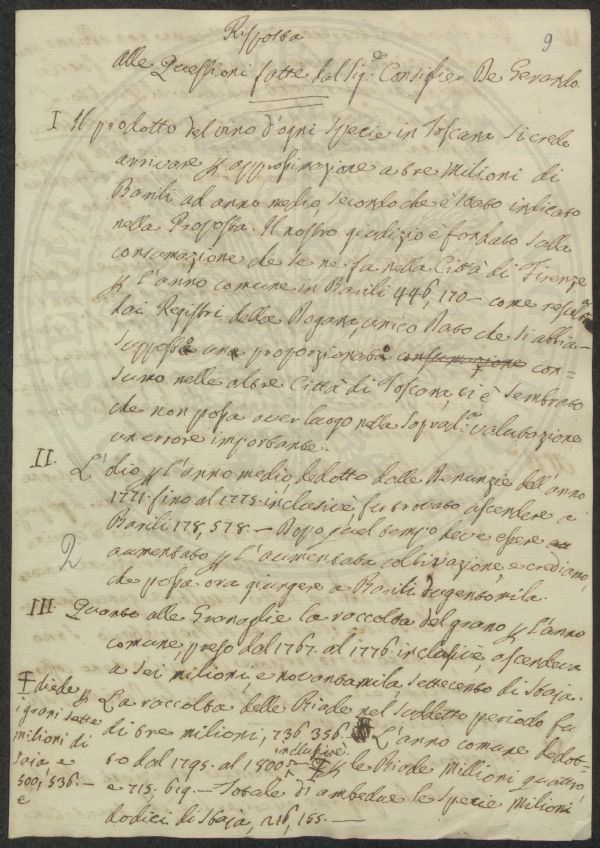 9
Risposta
alle Questioni fatte dal Sig.e Consiglier De Gerando
I Il prodotto del vino d'ogni specie in Toscana si crede
arrivare p approssimazione a tre milioni di
Barili ad anno medio, secondo che è stato indicato
nella Proposta. Il nostro giudizio è fondato sulla
consumazione che se ne fa nella Città di Firenze
p l'anno comune in Barili 446,170 — come resulta
dai Registri della Dogana, unico Dato che si abbia —
Supposto una proporzionato consumazione con=
sumo nelle altre Città di Toscana, ci è sembrato
che non possa aver luogo nella sopradd.a valutazione
un errore importante.
II. L'olio p l'anno medio, dedotto dalle Denunzie dell'anno
1771. fino al 1775. inclusive, fu trovato ascendere a
Barili 178,578. — Dopo quel tempo deve essere
aumentato p l'aumentata coltivazione, e crediamo,
che possa ora giungere a Barili dugentomila.
2
III. Quanto alle Granaglie la raccolta del grano p l'anno
comune, preso dal 1767. al 1776 inclusive, ascendeva
a sei milioni, e novantamila, settecento di Staja.
La raccolta delle Biade nel suddetto periodo fu
di tre milioni, 736 356. L'anno comune dedot=
to dal 1795. al 1800. inclusive p le Biade Millioni quattro,
e 715. 619. — Totale di ambedue le specie Milioni
dodici di Staja, 216, 155. —
diede p
i grani sette
milioni di
Staja e
500, 536. —
e